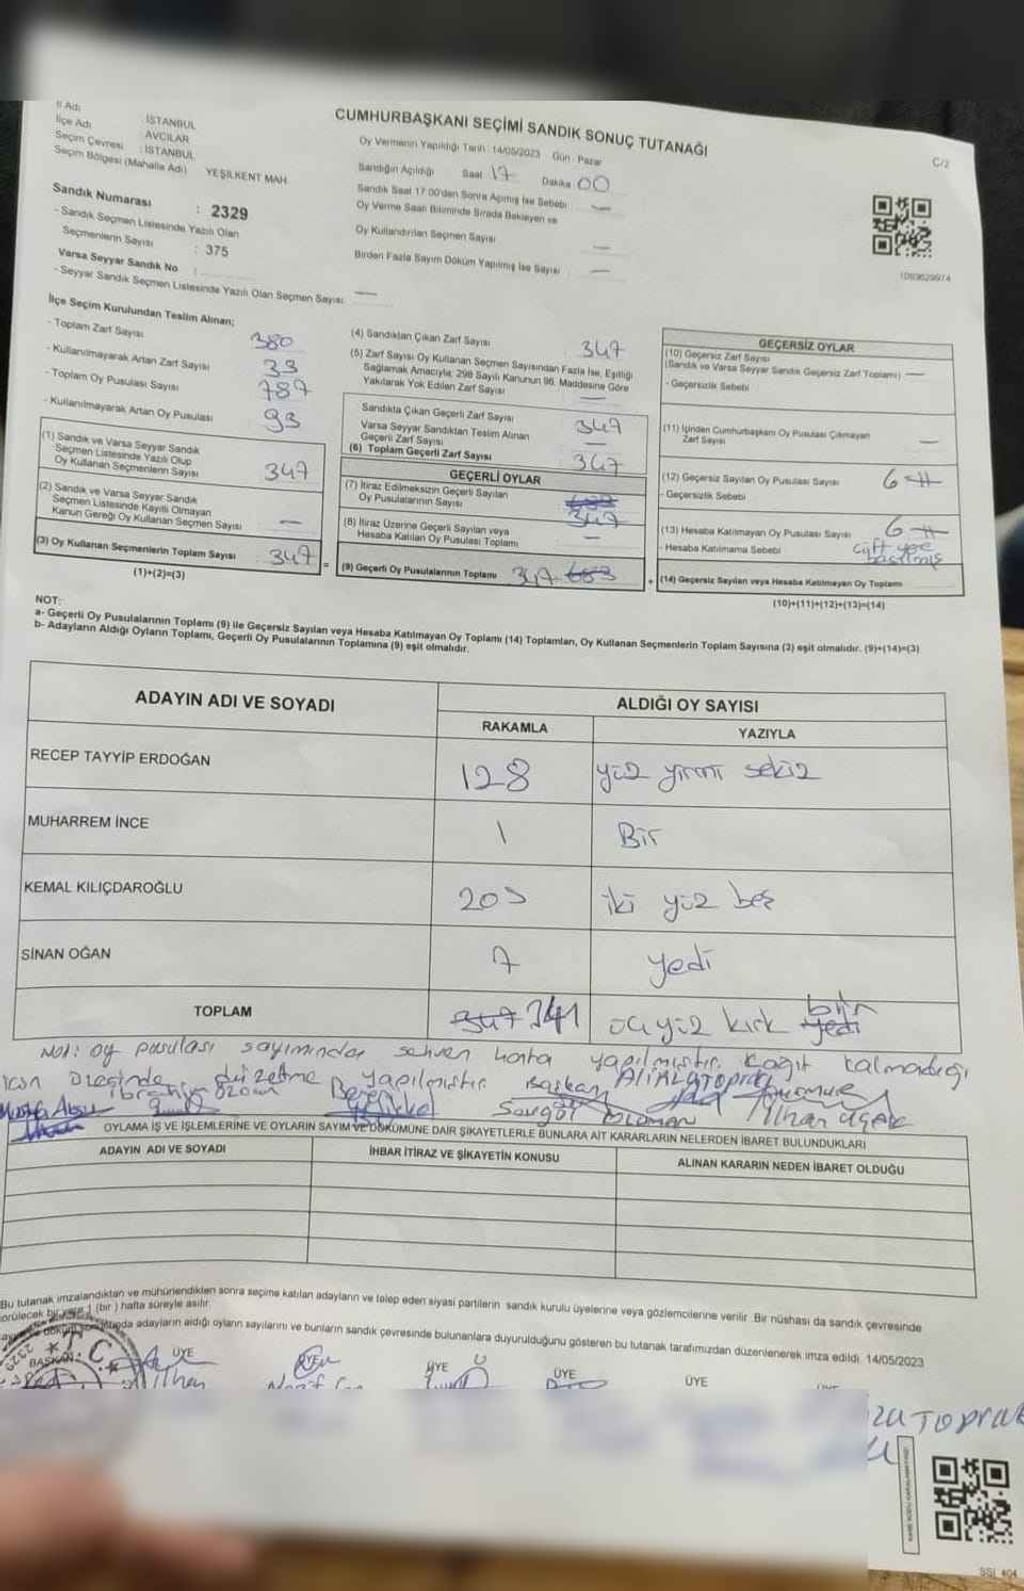 CUMHURBAŞKANI SEÇİMİ SANDIK SONUÇ TUTANAĞI
C/2
İl Adı
: İSTANBUL
İlçe Adı
AVCILAR
Seçim Çevresi : İSTANBUL
Seçim Bölgesi (Mahalle Adı) YEŞİLKENT MAH.
Sandık Numarası : 2329
- Sandık Seçmen Listesinde Yazılı Olan
Seçmenlerin Sayısı : 375
Varsa Seyyar Sandık No :
- Seyyar Sandık Seçmen Listesinde Yazılı Olan Seçmen Sayısı: —
Oy Vermenin Yapıldığı Tarih : 14/05/2023 Gün : Pazar
Sandığın Açıldığı Saat 17 Dakika 00
Sandık Saat 17.00'den Sonra Açılmış İse Sebebi —
Oy Verme Saati Bitiminde Sırada Bekleyen ve
Oy Kullandırılan Seçmen Sayısı —
Birden Fazla Sayım Döküm Yapılmış İse Sayısı —
İlçe Seçim Kurulundan Teslim Alınan;
- Toplam Zarf Sayısı 380
- Kullanılmayarak Artan Zarf Sayısı 33
- Toplam Oy Pusulası Sayısı 787
- Kullanılmayarak Artan Oy Pusulası 93
(1) Sandık ve Varsa Seyyar Sandık
Seçmen Listesinde Yazılı Olup
Oy Kullanan Seçmenlerin Sayısı 347
(2) Sandık ve Varsa Seyyar Sandık
Seçmen Listesinde Kayıtlı Olmayan
Kanun Gereği Oy Kullanan Seçmen Sayısı —
(3) Oy Kullanan Seçmenlerin Toplam Sayısı 347 =
(1)+(2)=(3)
(4) Sandıktan Çıkan Zarf Sayısı 347
(5) Zarf Sayısı Oy Kullanan Seçmen Sayısından Fazla İse, Eşitliği
Sağlamak Amacıyla; 298 Sayılı Kanunun 98. Maddesine Göre
Yakılarak Yok Edilen Zarf Sayısı —
Sandıkta Çıkan Geçerli Zarf Sayısı 347
Varsa Seyyar Sandıktan Teslim Alınan
Geçerli Zarf Sayısı —
(6) Toplam Geçerli Zarf Sayısı 347
GEÇERLİ OYLAR
(7) İtiraz Edilmeksizin Geçerli Sayılan
Oy Pusulalarının Sayısı 347
(8) İtiraz Üzerine Geçerli Sayılan veya
Hesaba Katılan Oy Pusulası Toplamı —
(9) Geçerli Oy Pusulalarının Toplamı 347 683 +
GEÇERSİZ OYLAR
(10) Geçersiz Zarf Sayısı
(Sandık ve Varsa Seyyar Sandık Geçersiz Zarf Toplamı) —
- Geçersizlik Sebebi
(11) İçinden Cumhurbaşkanı Oy Pusulası Çıkmayan
Zarf Sayısı —
(12) Geçersiz Sayılan Oy Pusulası Sayısı 6
- Geçersizlik Sebebi
(13) Hesaba Katılmayan Oy Pusulası Sayısı 6
- Hesaba Katılmama Sebebi çift
basılmış
(14) Geçersiz Sayılan veya Hesaba Katılmayan Oy Toplamı
(10)+(11)+(12)+(13)=(14)
NOT:
a- Geçerli Oy Pusulalarının Toplamı (9) ile Geçersiz Sayılan veya Hesaba Katılmayan Oy Toplamı (14) Toplamları, Oy Kullanan Seçmenlerin Toplam Sayısına (3) eşit olmalıdır. (9)+(14)=(3)
b- Adayların Aldığı Oyların Toplamı, Geçerli Oy Pusulalarının Toplamına (9) eşit olmalıdır.
ADAYIN ADI VE SOYADI
ALDIĞI OY SAYISI
RAKAMLA
YAZIYLA
RECEP TAYYİP ERDOĞAN 128 yüz yirmi sekiz
MUHARREM İNCE 1 Bir
KEMAL KILIÇDAROĞLU 205 iki yüz beş
SİNAN OĞAN 7 yedi
TOPLAM 347 341 üçyüz kırk yedi bir
Not: oy pusulası sayımında sehven hata yapılmıştır. Kağıt kalmadığı
için üzerinde düzeltme yapılmıştır. Başkan
OYLAMA İŞ VE İŞLEMLERİNE VE OYLARIN SAYIM VE DÖKÜMÜNE DAİR ŞİKAYETLERLE BUNLARA AİT KARARLARIN NELERDEN İBARET BULUNDUKLARI
ADAYIN ADI VE SOYADI
İHBAR İTİRAZ VE ŞİKAYETİN KONUSU
ALINAN KARARIN NEDEN İBARET OLDUĞU
Bu tutanak imzalandıktan ve mühürlendikten sonra seçime katılan adayların ve talep eden siyasi partilerin sandık kurulu üyelerine veya gözlemcilerine verilir. Bir nüshası da sandık çevresinde
görülecek bir yere 1 (bir) hafta süreyle asılır.
adayların aldığı oyların sayılarını ve bunların sandık çevresinde bulunanlara duyurulduğunu gösteren bu tutanak tarafımızdan düzenlenerek imza edildi. 14/05/2023
BAŞKAN
ÜYE
ÜYE
ÜYE
ÜYE
ÜYE
T.C.
2329
SSİ 404